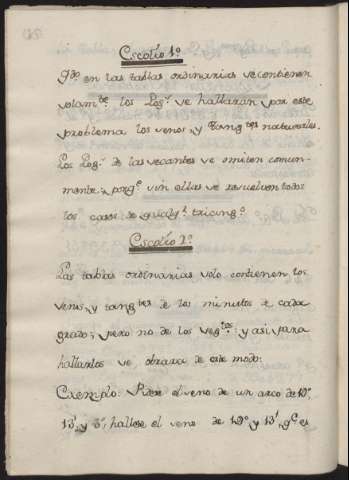 Escolio 1.º
Qdo en las tablas ordinarias se contienen
solam.te los Log.s se hallaran por este
problema los senos, y tang.tes naturales.
Los Log.s de las secantes se omiten comun-
mente, porq.e sin ellas se resuelven todos
los casos de
Escolio 2.º
Las tablas ordinarias solo contienen los
senos, y tang.tes de los minutos de cada
grado; pero no de los seg.dos: y asi para
hallarlos se obrara de este modo:
Exemplo: Pidese el seno de un arco de
13', y 5'', hallese el seno de y 13', q.e es